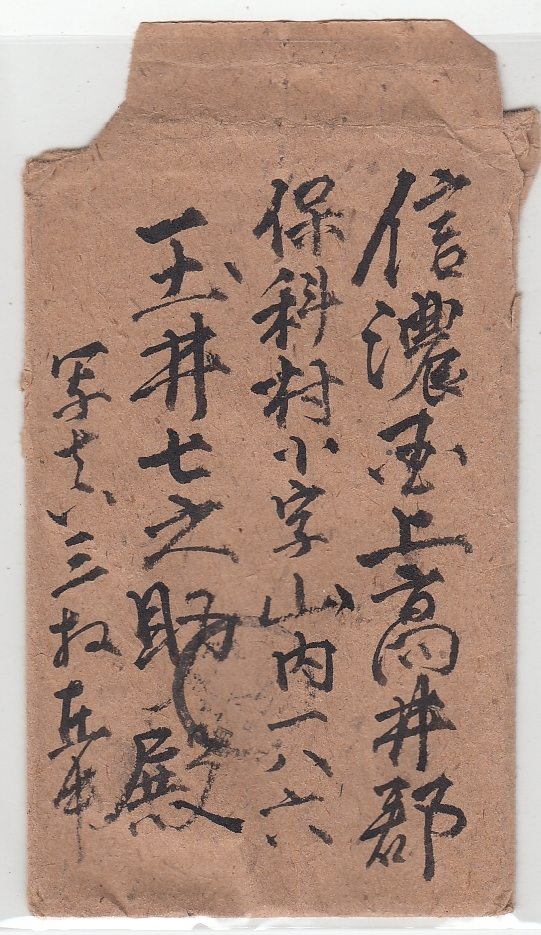 信濃国上高井郡
保科村小字山内一八六
玉井七之助殿
写真三枚在中